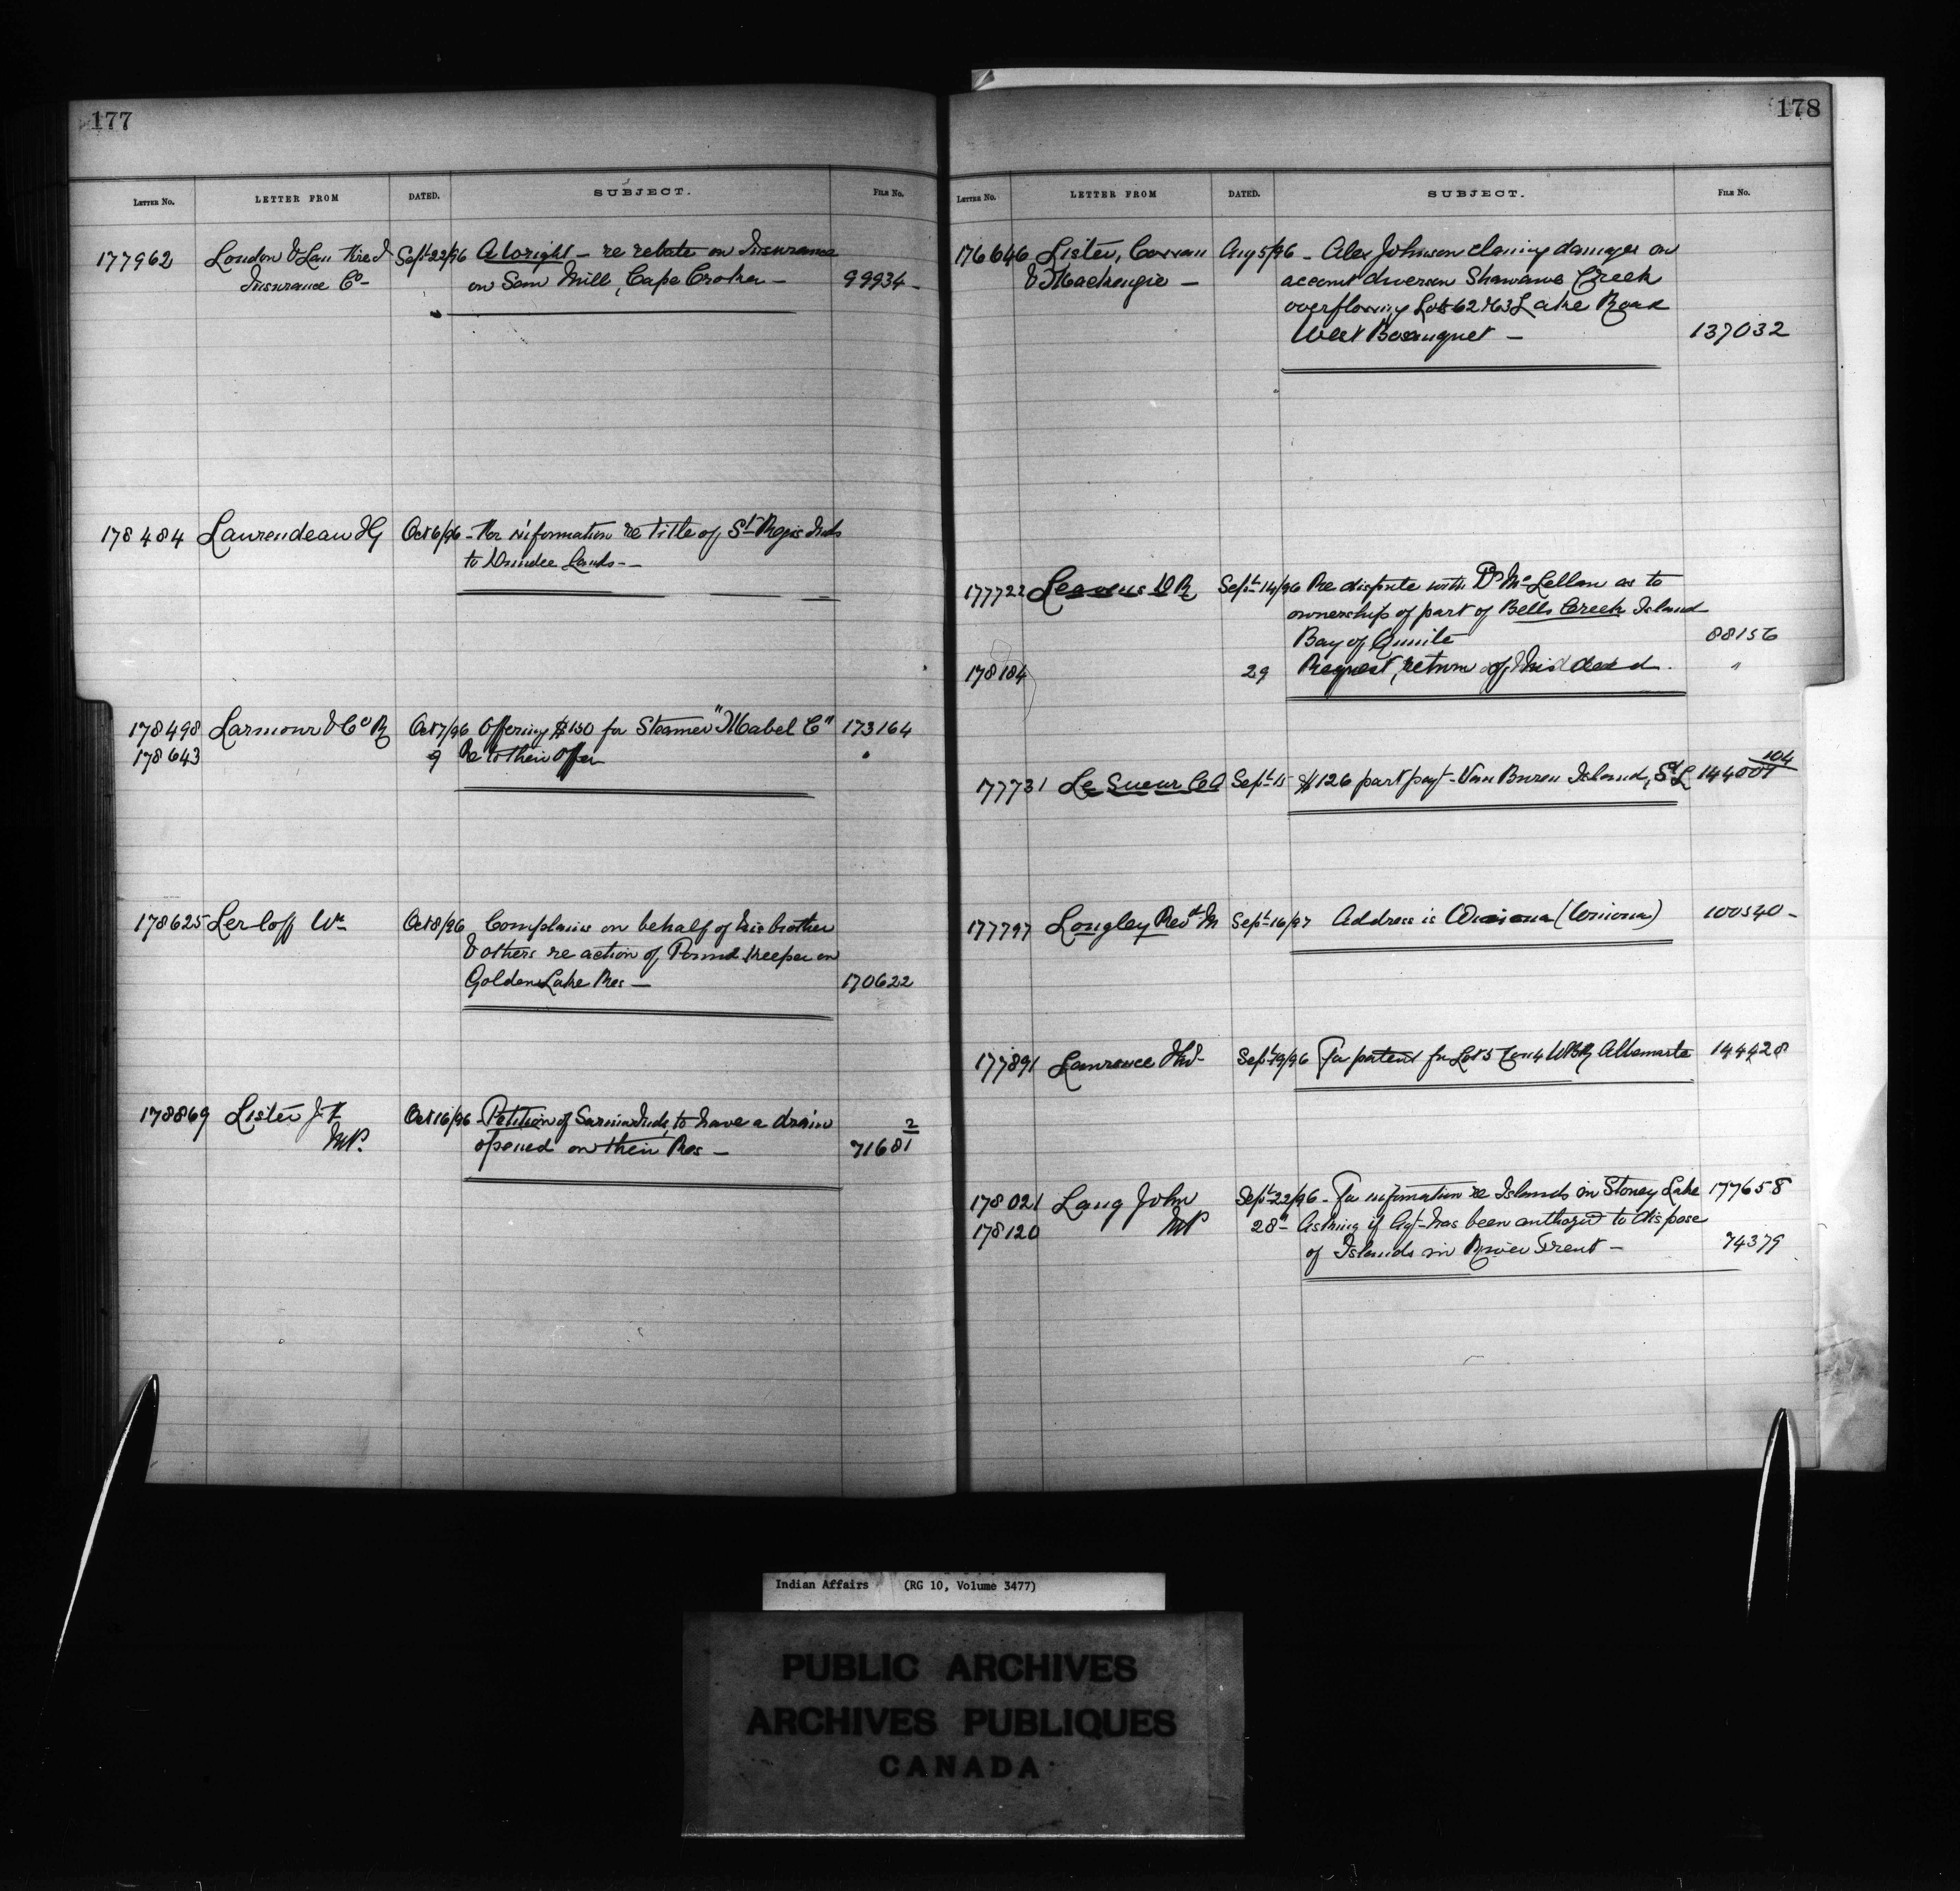 177
LETTER No. LETTER FROM DATED. SUBJECT. FILE No.
177962 London & Lan Insurance Co- Sept 22/96 A. Wright - re rebate on Insurance
on Saw Mill, Cape Croker - 99934-
178484 Laurendeau Oct 6/96 - For information re title of St Regis Inds
to Dundee Lands-
178498 Larmour & Co R Oct 7/96 Offering $150 for Steamer "Mabel C" 173164
178643 9 Re to their offer "
178625 Lerloff Wm Oct 8/96 Complains on behalf of his brother
& others re action of Pound Keeper on
Golden Lake Res - 170622
178869 Lister J.F. Oct 16/96 - Petition of Sarnia Inds, to have a drain
MP. opened on their Res - 71681 2
178
LETTER No. LETTER FROM DATED. SUBJECT. FILE No.
176646 Lister, Cowan Aug 5/96 - Alex Johnson claiming damages on
& Mackenzie - account diversion Creek
overflowing Lots 62 & 63 Lake Road
West Bosanquet - 137032
177722 Leavens D R Sept 14/96 Re dispute with Dr McLellan as to
ownership of part of Bells Creek Island
Bay of Quinte 88156
178184 29 Request, return of his deed. "
177731 Le Sueur Sept 15 $126 part payt - Van Buren Island, St L 144007 104
177797 Longley Revd M Sept 16/97 Address is (Winona) 100540-
177891 Lawrence Sept 19/96 For patent for Lot 5 Con 4 Albemarle 144428
178021 Lang John Sept 22/96 - For information re Islands in Stoney Lake 177658
178120 MP 28 - Asking if Agt has been authorized to dispose
of Islands in River Trent - 74379
Indian Affairs (RG 10, Volume 3477)
PUBLIC ARCHIVES
ARCHIVES PUBLIQUES
CANADA